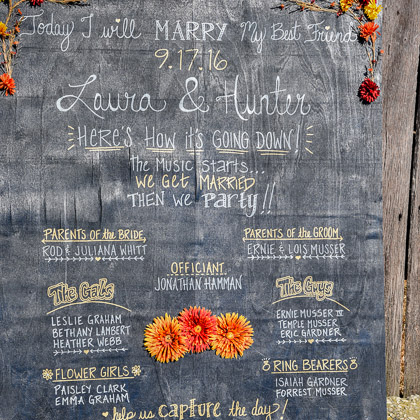 Today I will MARRY My Best Friend
9.17.16
Laura & Hunter
HERE'S HOW it's GOING DOWN!
The Music STARTS...
WE GET MARRIED
THEN WE Party!!
PARENTS of the BRIDE,
ROD & JULIANA WHITT
PARENTS of the GROOM,
ERNIE & LOIS MUSSER
OFFICIANT
JONATHAN HAMMAN
The Gals
LESLIE GRAHAM
BETHANY LAMBERT
HEATHER WEBB
The Guys
ERNIE MUSSER IV
TEMPLE MUSSER
ERIC GARDNER
FLOWER GIRLS
PAISLEY CLARK
EMMA GRAHAM
RING BEARERS
ISAIAH GARDNER
FORREST MUSSER
help us capture the day!